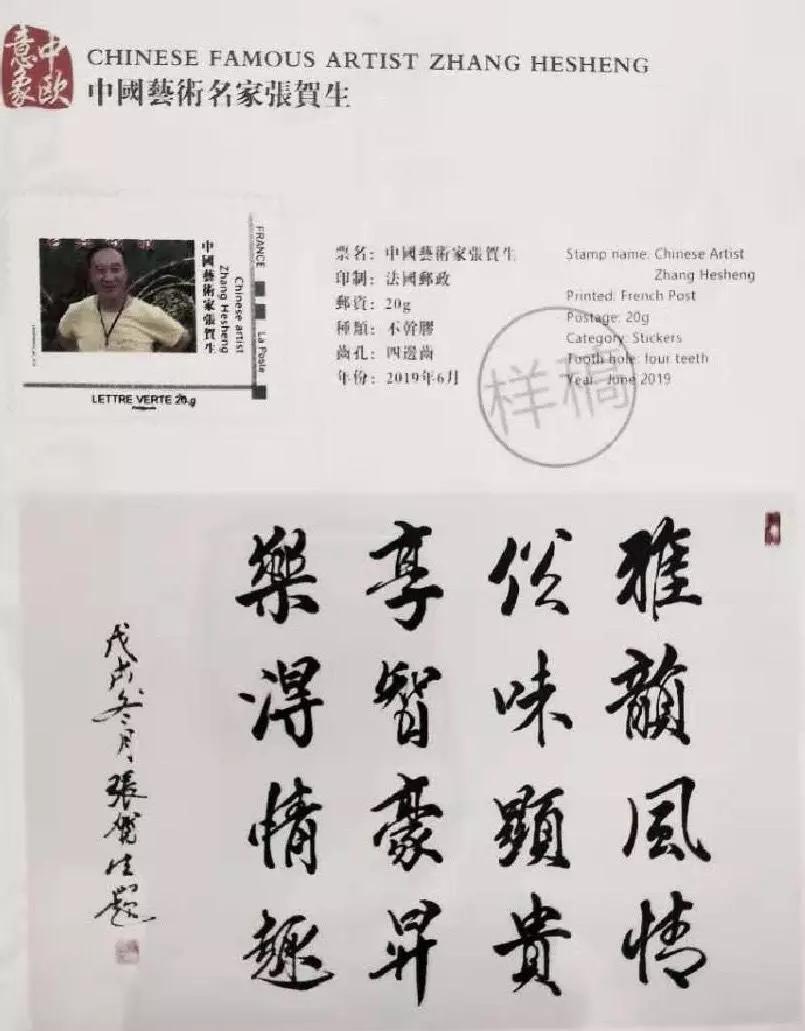 中歐
意象
CHINESE FAMOUS ARTIST ZHANG HESHENG
中國藝術名家張賀生
中國藝術家張賀生
Chinese artist
Zhang Hesheng
FRANCE
La Poste
LETTRE VERTE 20g
票名：中國藝術家張賀生
印制：法國郵政
郵資：20g
種類：不幹膠
齒孔：四邊齒
年份：2019年6月
Stamp name: Chinese Artist
Zhang Hesheng
Printed: French Post
Postage: 20g
Category: Stickers
Tooth hole: four teeth
Year: June 2019
样稿
雅韻風情
俗味顯貴
享智豪昇
樂得情趣
戊戌冬月張賀生題